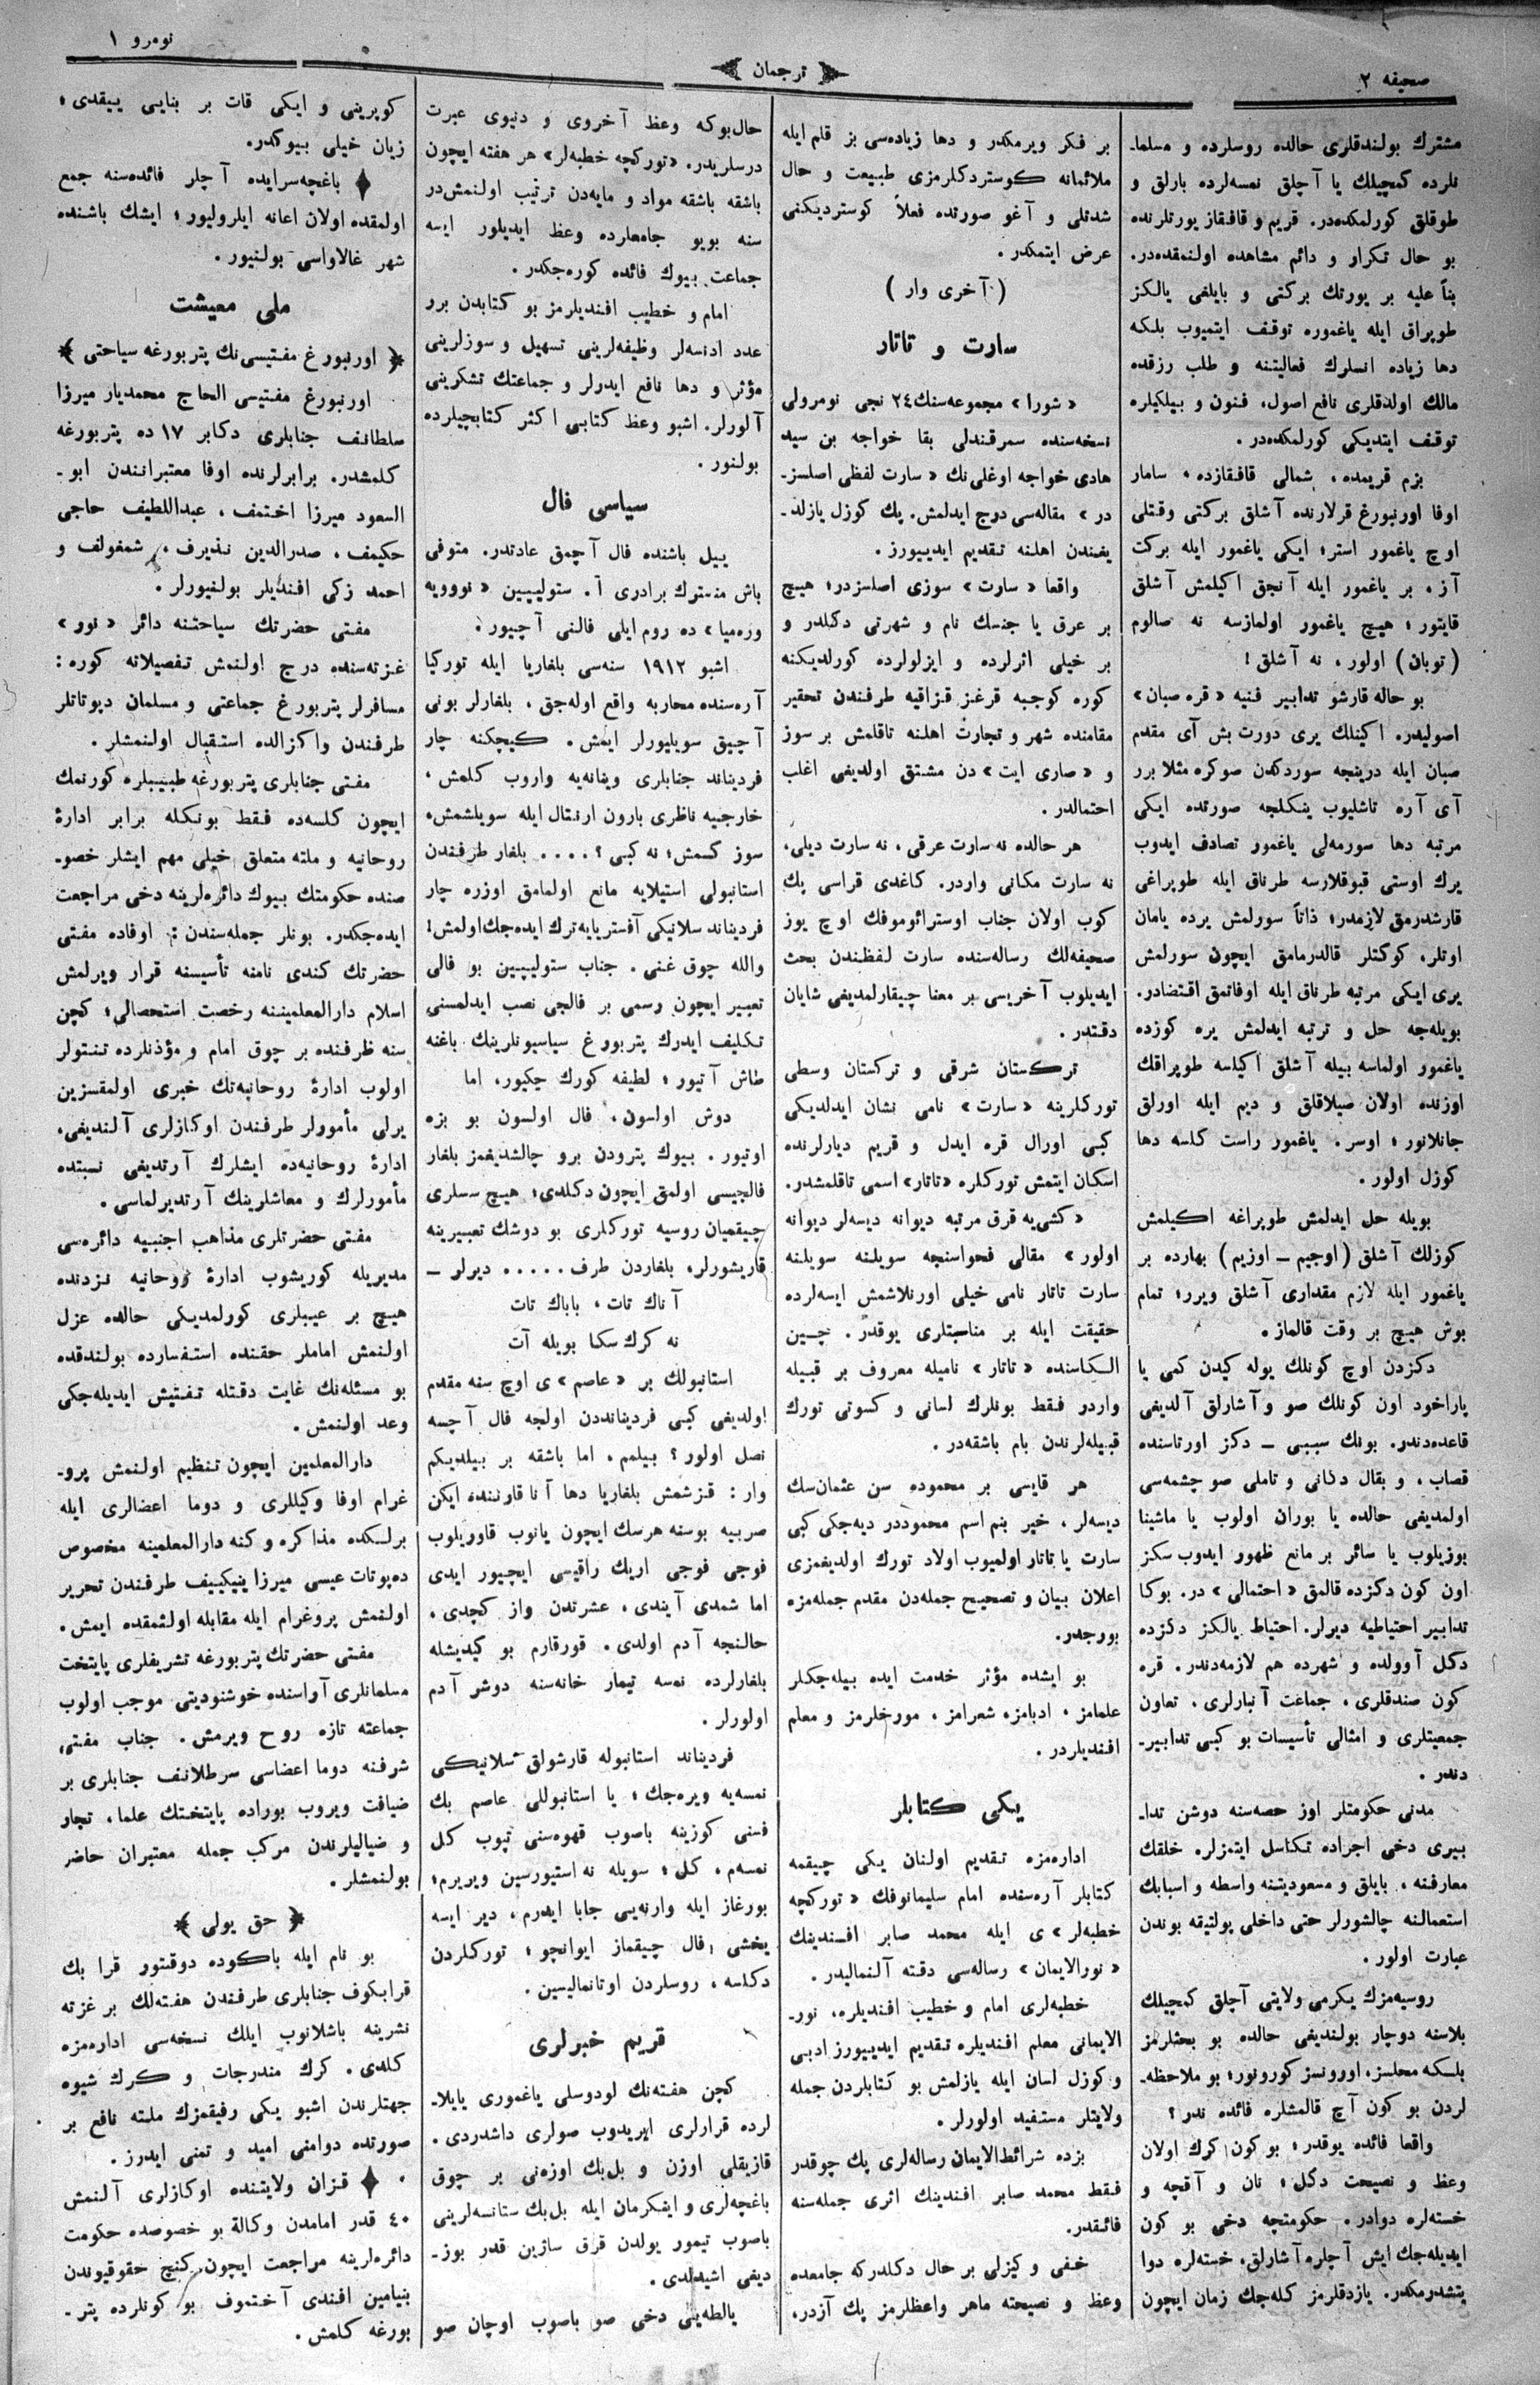 صحیفه ٢
ترجمان
نومرو ١
مشترك بولندقلری حالده روسلرده و مسلما-
نلرده كمچیلك یا آچلق نمسه‌لرده بارلق و
طوقلق كورلمكده‌در. قریم و قافقاز یورتلرنده
بو حال تكرار و دائم مشاهده اولنمقده‌در.
بنأ علیه بر یورتك بركتی و بایلغی یالكز
طوپراق ایله یاغموره توقف ایتمیوب بلكه
دها زیاده انسلرك فعالیتنه و طلب رزقده
مالك اولدقلری نافع اصول، فنون و بیلكیلره
توقف ایتدیكی كورلمكده‌در.
بزم قریمده، شمالی قافقازده، سامار
اوفا اورنبورغ قرلارنده آشلق بركتی وقتلی
اوچ یاغمور استر؛ ایكی یاغمور ایله بركت
آز، بر یاغمور ایله آنجق اكیلمش آشلق
قایتور؛ هیچ یاغمور اولمازسه نه صالوم
(توبان) اولور، نه آشلق!
بو حاله قارشو تدابیر فنیه «قره صبان»
اصولیدر. اكینلك یری دورت بش آی مقدم
صبان ایله درینجه سوردكدن صوكره مثلا برر
آی آره تاشلیوب ینكلجه صورتده ایكی
مرتبه دها سورمه‌لی یاغمور تصادف ایدوب
یرك اوستی قبوقلارسه طرناق ایله طوپراغی
قارشدرمق لازمدر؛ ذاتاً سورلمش یرده یامان
اوتلر، كوكتلر قالدرمامق ایچون سورلمش
یری ایكی مرتبه طرناق ایله اوفاتمق اقتضادر.
بویله‌جه حل و ترتبه ایدلمش یره كوزده
یاغمور اولماسه بیله آشلق اكیلسه طوپراقك
اوزنده اولان صیلاقلق و دیم ایله اورلق
جانلانور؛ اوسر. یاغمور راست كلسه دها
كوزل اولور.
بویله حل ایدلمش طوپراغه اكیلمش
كوزلك آشلق (اوجیم – اوزیم) بهارده بر
یاغمور ایله لازم مقداری آشلق ویرر؛ تمام
بوش هیچ بر وقت قالماز.
دكزدن اوچ كونلك یوله كیدن كمی یا
پاراخود اون كونلك صو وآشارلق آلدیغی
قاعده‌دندر. بونك سببی – دكز اورتاسنده
قصاب، و بقال دكانی و تاملی صو چشمه‌سی
اولمدیغی حالده یا بوران اولوب یا ماشینا
بوزیلوب یا سائر بر مانع ظهور ایدوب سكز
اون كون دكزده قالمق «احتمالی» در. بوكا
تدابیر احتیاطیه دیرلر. احتیاط یالكز دكزده
دكل آوولده و شهرده هم لازمه‌دندر. قره
كون صندقلری، جماعت آنبارلری، تعاون
جمعیتلری و امثالی تأسیسات بو كبی تدابیر-
دندر.
مدنی حكومتلر اوز حصه‌سنه دوشن تدا-
بیری دخی اجراده تكاسل ایتمزلر. خلقك
معارفنه، بایلق و مسعودیتنه واسطه و اسبابك
استعمالنه چالشورلر حتی داخلی پولتیقه بوندن
عبارت اولور.
روسیه‌مزك یكرمی ولایتی آچلق كمچیلك
بلاسنه دوچار بولندیغی حالده بو بحثلرمز
بلكه محلسز، اوروننسز كورونور؛ بو ملاحظه-
لردن بو كون آچ قالمشلره فائده ندر؟
واقعا فائده یوقدر؛ بو كون كرك اولان
وعظ و نصیحت دكل؛ نان و آقچه و
خسته‌لره دوادر. حكومتچه دخی بو كون
ایدیله‌جك ایش آچلره آشارلق، خسته‌لره دوا
یتشدرمكدر. یازدقلرمز كله‌جك زمان ایچون
بر فكر ویرمكدر و دها زیاده‌سی بز قلم ایله
ملائمانه كوستردكلرمزی طبیعت و حال
شدتلی و آغو صورتده فعلاً كوستردیكنی
عرض ایتمكدر.
(آخری وار)
سارت و تاتار
«شورا» مجموعه‌سنك ٢٤ نجی نومرولی
نسخه‌سنده سمرقندلی بقا خواجه بن سید
هادی خواجه اوغلی‌نك «سارت لفظی اصلسز-
در» مقاله‌سی درج ایدلمش. پك كوزل یازلد-
یغندن اهلنه تقدیم ایدییورز.
واقعا «سارت» سوزی اصلسزدر؛ هیچ
بر عرق یا جنسك نام و شهرتی دكلدر و
بر خیلی اثرلرده و ایزلولرده كورلدیكنه
كوره كوچبه قرغز قزاقیه طرفندن تحقیر
مقامنده شهر و تجارت اهلنه تاقلمش بر سوز
و «صاری ایت» دن مشتق اولدیغی اغلب
احتمالدر.
هر حالده نه سارت عرقی، نه سارت دیلی،
نه سارت مكانی واردر. كاغدی قراسی پك
كوب اولان جناب اوسترائوموفك اوچ یوز
صحیفه‌لك رساله‌سنده سارت لفظندن بحث
ایدیلوب آخریسی بر معنا چیقارلمدیغی شایان
دقتدر.
تركستان شرقی و تركستان وسطی
توركلرینه «سارت» نامی نشان ایدلدیكی
كبی اورال قره ایدل و قریم دیارلرنده
اسكان ایتمش توركلره «تاتار» اسمی تاقلمشدر.
«كشی‌یه قرق مرتبه دیوانه دیسه‌لر دیوانه
اولور» مقالی فحواسنچه سویلنه سویلنه
سارت تاتار نامی خیلی اورنلاشمش ایسه‌لرده
حقیقت ایله بر مناسبتلری یوقدر. چین
الكاسنده «تاتار» نامیله معروف بر قبیله
واردر فقط بونلرك لسانی و كسوتی تورك
قبیله‌لرندن بام باشقه‌در.
هر قایسی بر محموده سن عثمان‌سك
دیسه‌لر، خیر بنم اسم محموددر دیه‌جكی كبی
سارت یا تاتار اولمیوب اولاد تورك اولدیغمزی
اعلان بیان و تصحیح جمله‌دن مقدم جمله‌مزه
بورجدر.
بو ایشده مؤثر خدمت ایده بیله‌جكلر
علمامز، ادبامز، شعرامز، مورخلرمز و معلم
افندیلردر.
یكی كتابلر
اداره‌مزه تقدیم اولنان یكی چیقمه
كتابلر آره‌سنده امام سلیمانوفك «توركچه
خطبه‌لر» ی ایله محمد صابر افندینك
«نورالایمان» رساله‌سی دقته آلنمالیدر.
خطبه‌لری امام و خطیب افندیلره، نور-
الایمانی معلم افندیلره تقدیم ایدییورز ادبی
و كوزل لسان ایله یازلمش بو كتابلردن جمله
ولایتلر مستفید اولورلر.
بزده شرائط‌الایمان رساله‌لری پك چوقدر
فقط محمد صابر افندینك اثری جمله‌سنه
فائقدر.
خفی و كیزلی بر حال دكلدركه جامعده
وعظ و نصیحته ماهر واعظلرمز پك آزدر،
حال‌بوكه وعظ آخروی و دنیوی عبرت
درسلریدر. «توركچه خطبه‌لر» هر هفته ایچون
باشقه باشقه مواد و مایه‌دن ترتیب اولنمش‌در
سنه بویو جامعلرده وعظ ایدیلور ایسه
جماعت بیوك فائده كوره‌جكدر.
امام و خطیب افندیلرمز بو كتابدن برر
عدد ادنسه‌لر وظیفه‌لرینی تسهیل و سوزلرینی
مؤثر و دها نافع ایدرلر و جماعتك تشكرینی
آلورلر. اشبو وعظ كتابی اكثر كتابچیلرده
بولنور.
سیاسی فال
ییل باشنده فال آچمق عادتدر. متوفی
باش منسترك برادری آ. ستولیپین «نوویه
وره‌میا» ده روم ایلی فالنی آچیور.
اشبو ١٩١٢ سنه‌سی بلغاریا ایله توركیا
آره‌سنده محاربه واقع اوله‌جق، بلغارلر بونی
آچیق سویلیورلر ایمش. كیچكنه چار
فردیناند جنابلری ویانه‌یه واروب كلمش،
خارجیه ناظری بارون ارنتال ایله سویلشمش،
سوز كسمش؛ نه كبی؟ .... بلغار طرفندن
استانبولی استیلایه مانع اولمامق اوزره چار
فردیناند سلانیكی آفستریایه ترك ایده‌جك اولمش!
والله چوق غنی. جناب ستولیپین بو فالی
تعبیر ایچون رسمی بر فالجی نصب ایدلمسنی
تكلیف ایدرك پتربورغ سیاسیونلرینك باغنه
طاش آتیور؛ لطیفه كورك چكیور، اما
دوش اولسون، فال اولسون بو بزه
اوتیور. بیوك پترودن برو چالشدیغمز بلغار
فالجیسی اولمق ایچون دكلدی؛ هیچ سسلری
چیقمیان روسیه توركلری بو دوشك تعبیرینه
قاریشورلر، بلغاردن طرف ..... دیرلر –
آناك تات، باباك تات
نه كرك سكا بویله آت
استانبولك بر «عاصم» ی اوچ سنه مقدم
اولدیغی كبی فردیناندن اولجه فال آچسه
نصل اولور؟ بیلمم، اما باشقه بر بیلدیكم
وار: قزشمش بلغاریا دها آناقارننده ایكن
صربیه بوسنه هرسك ایچون یانوب قاوریلوب
فوجی فوجی اریك راقیسی ایچیور ایدی
اما شمدی آیندی، عشرتدن واز كچدی،
حالنجه آدم اولدی. قورقارم بو كیدیشله
بلغارلرده نمسه تیمار خانه‌سنه دوشر آدم
اولورلر.
فردیناند استانبوله قارشولق سلانیكی
نمسه‌یه ویره‌جك؛ یا استانبوللی عاصم بك
فسنی كوزینه باصوب قهوه‌سنی توب كل
نمسه‌م، كل؛ سویله نه استیورسین ویریرم؛
بورغاز ایله وارنه‌یی جابا ایدرم، دیر ایسه
یخشی فال چیقماز ایوانچو؛ توركلردن
دكلسه، روسلردن اوتانمالیسین.
قریم خبرلری
كچن هفته‌نك لودوسلی یاغموری یایلا-
لرده قرارلری ایریدوب صولری داشدردی.
قازیقلی اوزن و بل‌بك اوزه‌نی بر چوق
باغچه‌لری و اینكرمان ایله بل‌بك ستانسه‌لرینی
باصوب تیمور یولدن قرق ساژین قدر بوز-
دیغی اشیدلدی.
یالطه‌یی دخی صو باصوب اوچان صو
كوپرینی و ایكی قات بر بنایی ییقدی؛
زیان خیلی بیوكدر.
باغچه‌سرایده آچلر فائده‌سنه جمع
اولمقده اولان اعانه ایلرولیور؛ ایشك باشنده
شهر غالاواسی بولنیور.
ملی معیشت
﴿ اورنبورغ مفتیسی‌نك پتربورغه سیاحتی ﴾
اورنبورغ مفتیسی الحاج محمدیار میرزا
سلطانف جنابلری دكابر ١٧ ده پتربورغه
كلمشدر. برابرلرنده اوفا معتبراندن ابو-
السعود میرزا اختمف، عبداللطیف حاجی
حكیمف، صدرالدین نذیرف، شمغولف و
احمد زكی افندیلر بولنیورلر.
مفتی حضرتك سیاحتنه دائر «نور»
غزته‌سنده درج اولنمش تفصیلاته كوره:
مسافرلر پتربورغ جماعتی و مسلمان دیوتاتلر
طرفندن واكزالده استقبال اولنمشلر.
مفتی جنابلری پتربورغه طبیبلره كورنمك
ایچون كلسه‌ده فقط بونكله برابر ادارۀ
روحانیه و ملته متعلق خیلی مهم ایشلر خصو-
صنده حكومتك بیوك دائره‌لرینه دخی مراجعت
ایده‌جكدر. بونلر جمله‌سندن: اوفاده مفتی
حضرتك كندی نامنه تأسیسنه قرار ویرلمش
اسلام دارالمعلمیننه رخصت استحصالی؛ كچن
سنه ظرفنده بر چوق امام و مؤذنلرده تنتولر
اولوب ادارۀ روحانیه‌نك خبری اولمقسزین
یرلی مأمورلر طرفندن اوكازلری آلندیغی،
ادارۀ روحانیه‌ده ایشلرك آرتدیغی نسبتده
مأمورلرك و معاشلرینك آرتدیرلماسی.
مفتی حضرتلری مذاهب اجنبیه دائره‌سی
مدیریله كوریشوب ادارۀ روحانیه نزدنده
هیچ بر عیبلری كورلمدیكی حالده عزل
اولنمش اماملر حقنده استفسارده بولندقده
بو مسئله‌نك غایت دقتله تفتیش ایدیله‌جكی
وعد اولنمش.
دارالمعلمین ایچون تنظیم اولنمش پرو-
غرام اوفا وكیللری و دوما اعضالری ایله
برلكده مذاكره و كنه دارالمعلمینه مخصوص
ده‌پوتات عیسی میرزا ینیكییف طرفندن تحریر
اولنمش پروغرام ایله مقابله اولنمقده ایمش.
مفتی حضرتك پتربورغه تشریفلری پایتخت
مسلمانلری آراسنده خوشنودیتی موجب اولوب
جماعته تازه روح ویرمش. جناب مفتی
شرفنه دوما اعضاسی سرطلانف جنابلری بر
ضیافت ویروب بوراده پایتختك علما، تجار
و ضیالیلرندن مركب جمله معتبران حاضر
بولنمشلر.
﴿ حق یولی ﴾
بو نام ایله باكوده دوقتور قرا بك
قرابكوف جنابلری طرفندن هفته‌لك بر غزته
نشرینه باشلانوب ایلك نسخه‌سی اداره‌مزه
كلدی. كرك مندرجات و كرك شیوه
جهتلرندن اشبو یكی رفیقمزك ملته نافع بر
صورتده دوامنی امید و تمنی ایدرز.
قزان ولایتنده اوكازلری آلنمش
٤٠ قدر امامدن وكالة بو خصوصده حكومت
دائره‌لرینه مراجعت ایچون كنج حقوقیوندن
بنیامین افندی آختموف بو كونلرده پتر-
بورغه كلمش.